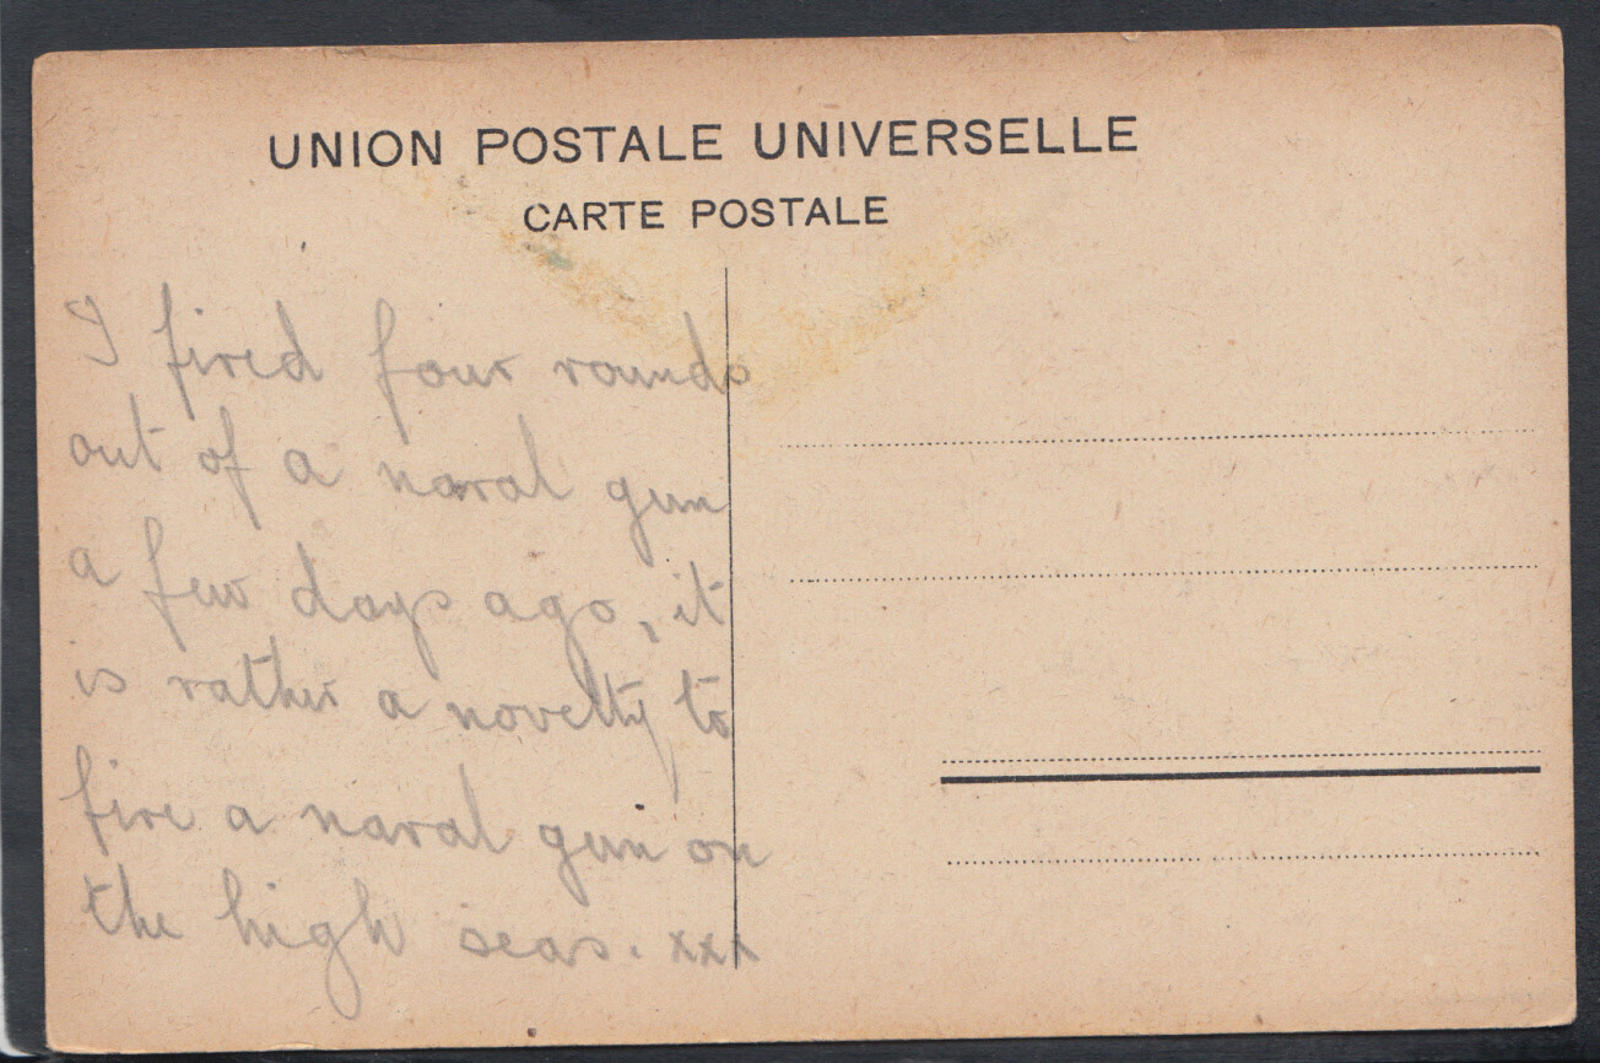 UNION POSTALE UNIVERSELLE
CARTE POSTALE
I fired four rounds
out of a naval gun
a few days ago, it
is rather a novelty to
fire a naval gun on
the high seas. xxx